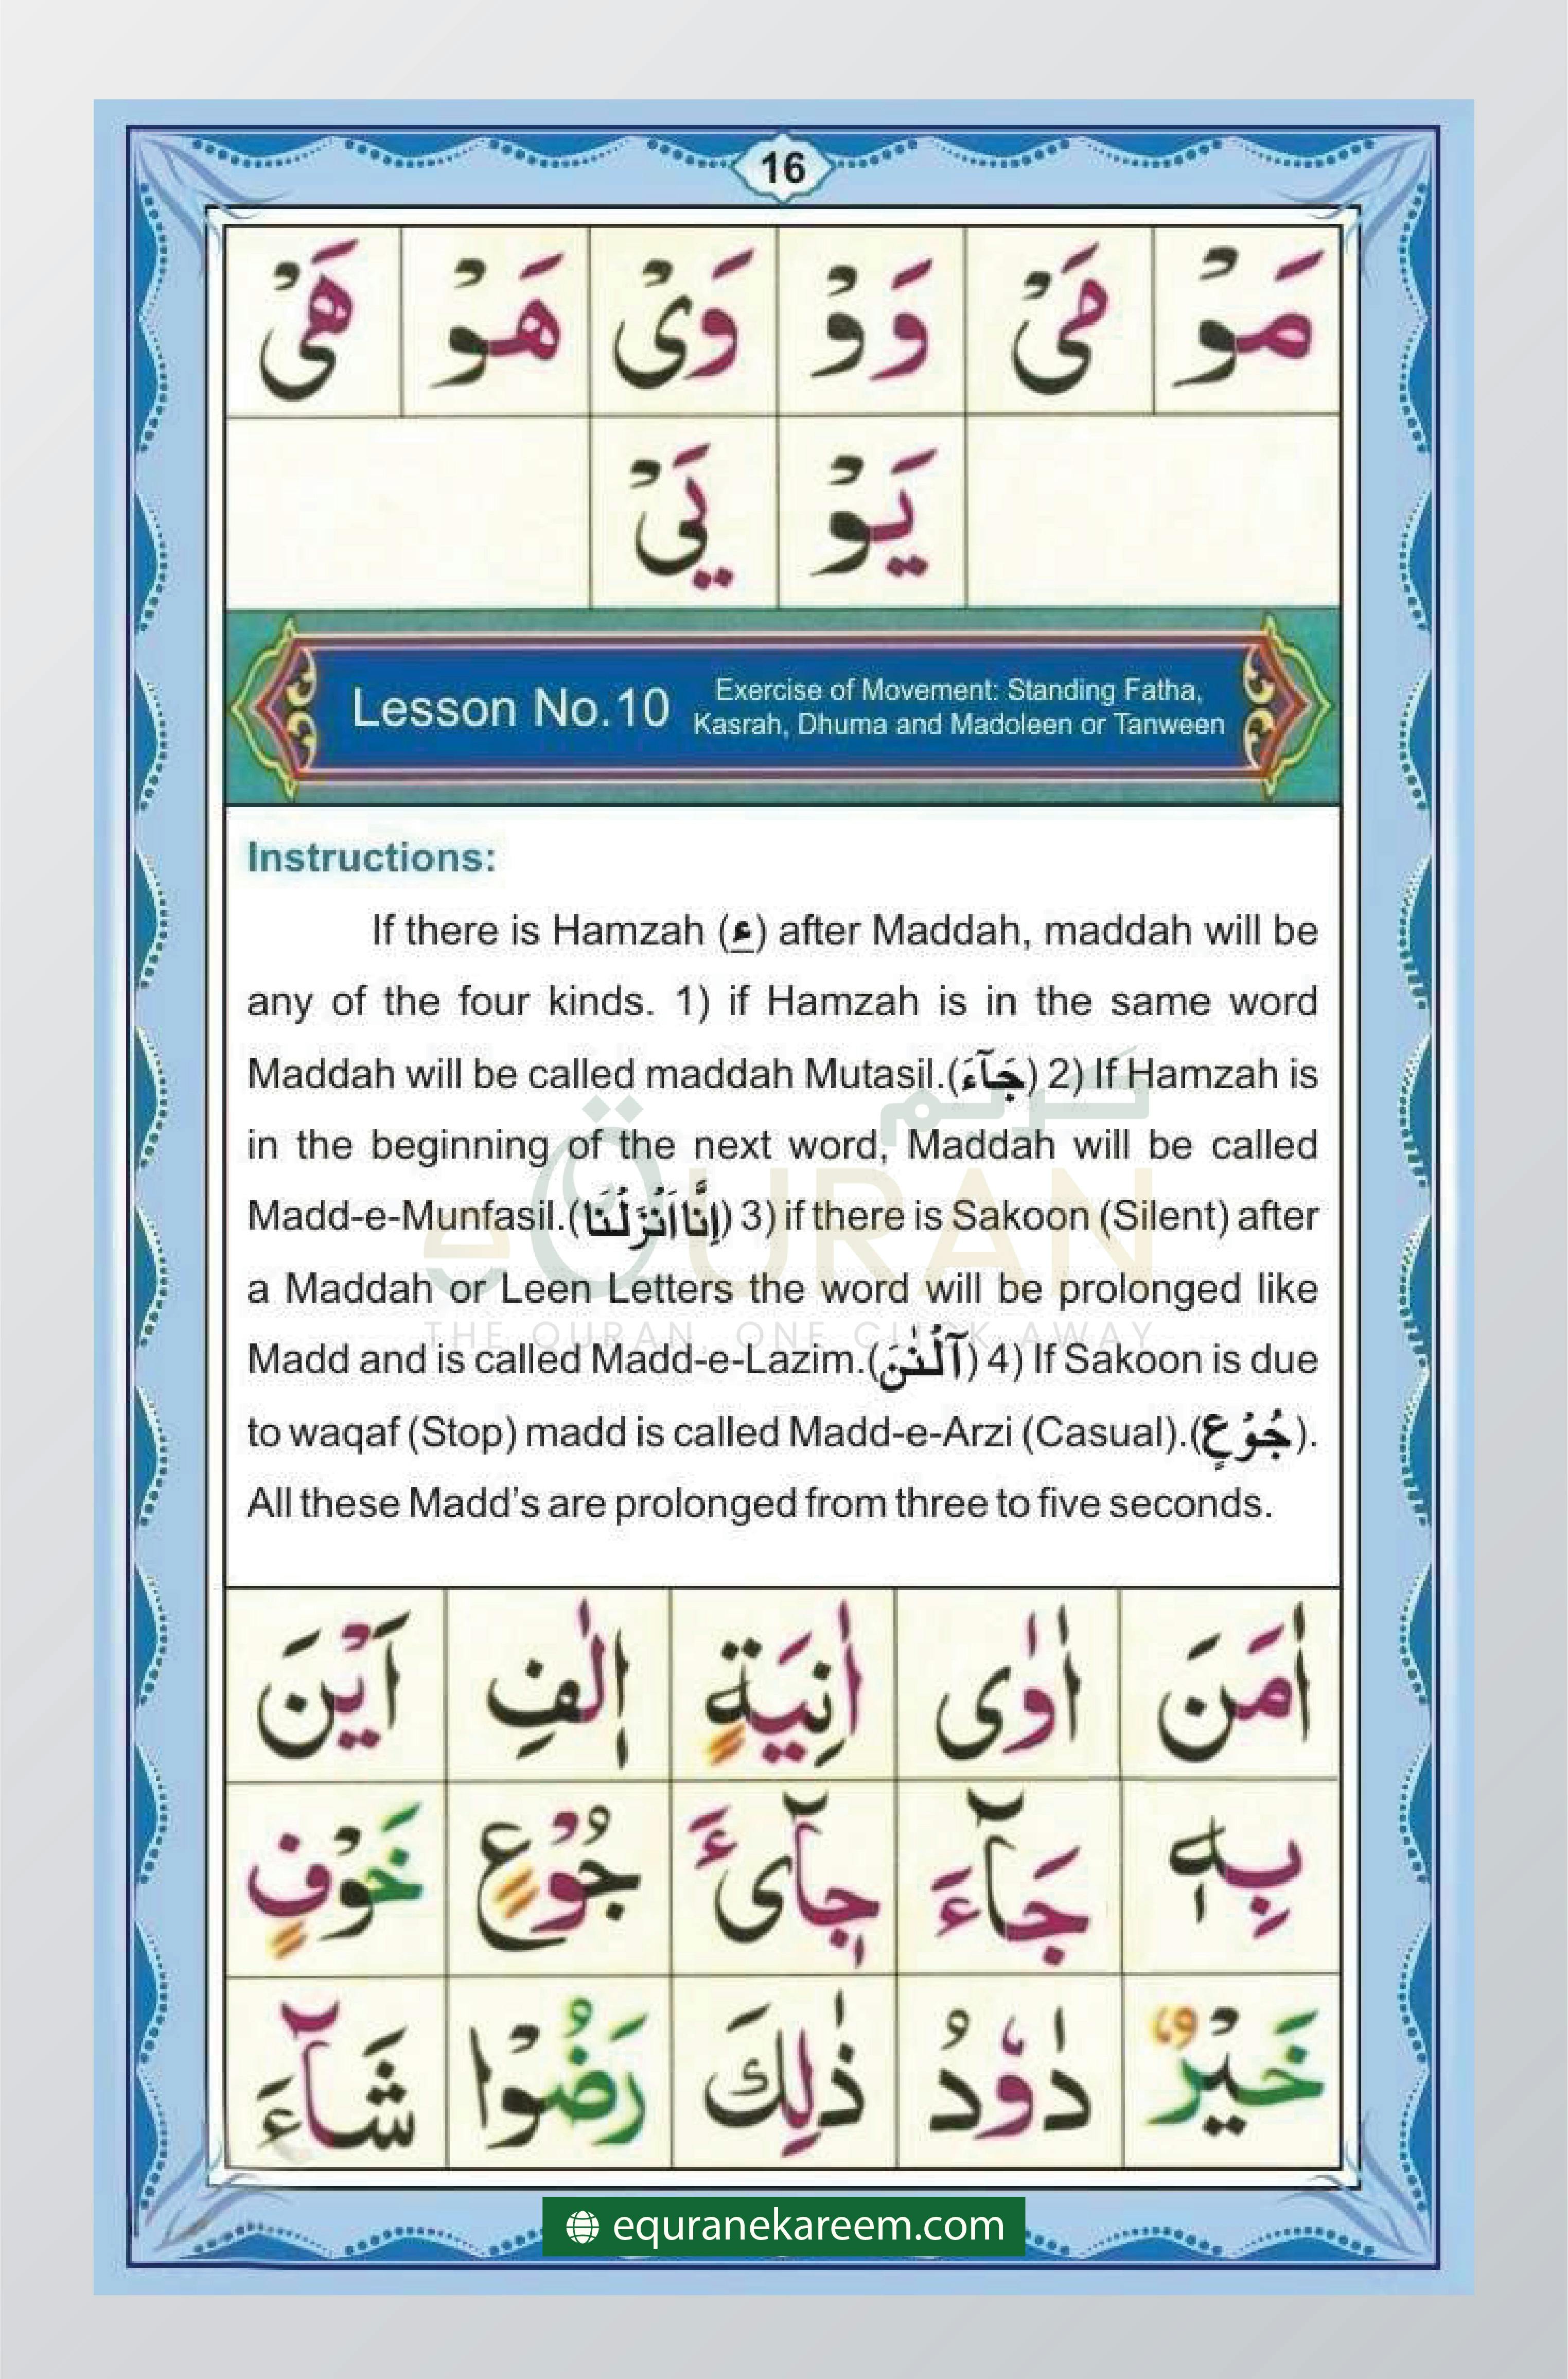 16
مَوْ مَیْ وَوْ وَیْ هَوْ هَیْ
یَوْ یَیْ
Lesson No.10
Exercise of Movement: Standing Fatha,
Kasrah, Dhuma and Madoleen or Tanween
Instructions:
If there is Hamzah (ء) after Maddah, maddah will be
any of the four kinds. 1) if Hamzah is in the same word
Maddah will be called maddah Mutasil.(جَآءَ) 2) If Hamzah is
in the beginning of the next word, Maddah will be called
Madd-e-Munfasil.(اِنَّا اَنْزَلْنَا) 3) if there is Sakoon (Silent) after
a Maddah or Leen Letters the word will be prolonged like
Madd and is called Madd-e-Lazim.(آلْـٰٔنَ) 4) If Sakoon is due
to waqaf (Stop) madd is called Madd-e-Arzi (Casual).(جُوْعٍ).
All these Madd's are prolonged from three to five seconds.
كريم
eQURAN
THE QURAN, ONE CLICK AWAY
اٰمَنَ اٰوٰى اٰنِيَةٍ اٖلٰفِ اَيْنَ
بِهٖ جَآءَ جِآیْٓءَ جُوْعٍ خَوْفٍ
خَيْرٌ دٰوٗدُ ذٰلِكَ رَضُوْا شَآءَ
equranekareem.com